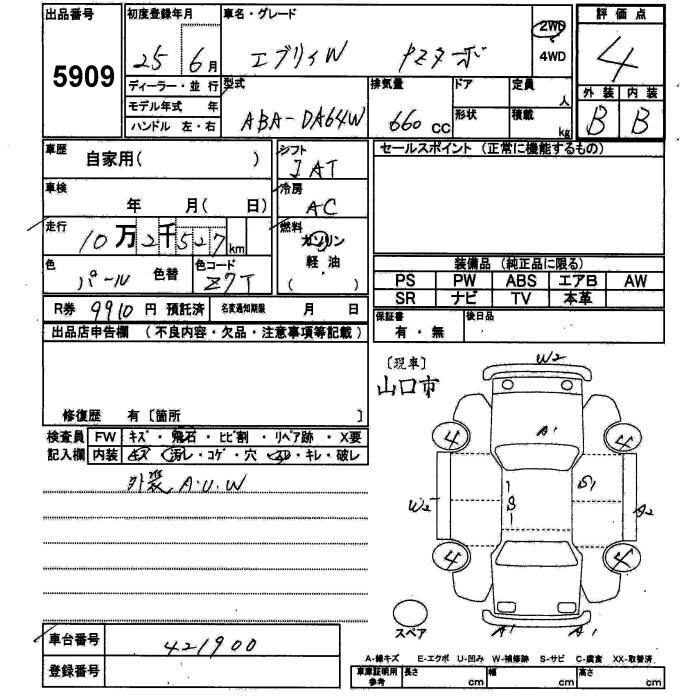 出品番号 初度登録年月 車名・グレード 2WD 評価点
5909 25 6月 エブリィW PZターボ 4WD 4
ディーラー・並行 型式 排気量 ドア 定員 人 外装 内装
モデル年式 年 ABA-DA64W 660 CC 形状 積載 kg B B
ハンドル 左・右
車歴 自家用( ) シフト IAT セールスポイント (正常に機能するもの)
車検 年 月( 日) 冷房 AC
走行 10万2千527km 燃料 ガソリン
軽・油
( )
色 パール 色替 色コード Z7T
装備品 (純正品に限る)
PS PW ABS エアB AW
SR ナビ TV 本革
R券 9910円 預託済 名変通知期限 月 日
保証書 有・無 後日品
出品店申告欄 (不良内容・欠品・注意事項等記載)
修復歴 有〔箇所 〕
検査員 FW キズ・飛石・ヒビ割・リペア跡・X要
記入欄 内装 キズ・汚レ・コゲ・穴・スレ・キレ・破レ
外装 A.U.W
〔現車〕
山口市
W2
A1
4 4
W2 S S1 A2
4 4
スペア A1 A1
車台番号 421900
登録番号
A-線キズ E-エクボ U-凹み W-補修跡 S-サビ C-腐食 XX-取替済
車庫証明用参考 長さ cm 幅 cm 高さ cm